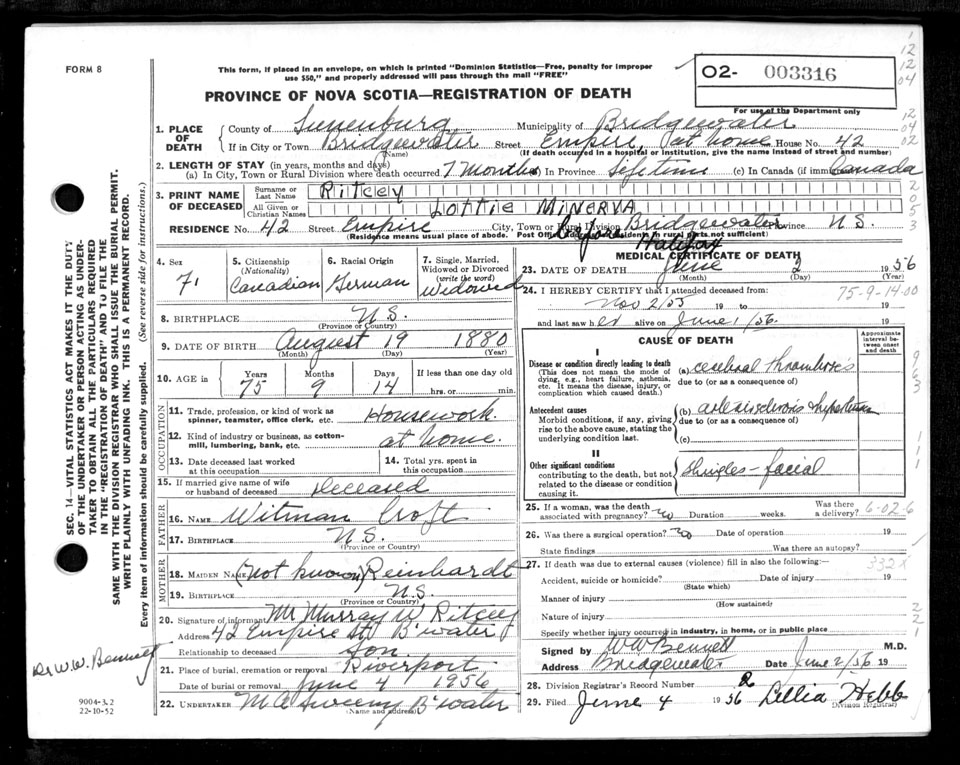 FORM 8
This form, if placed in an envelope, on which is printed "Dominion Statistics—Free, penalty for improper
use $50," and properly addressed will pass through the mail "FREE"
02- 003316
PROVINCE OF NOVA SCOTIA—REGISTRATION OF DEATH
For use of the Department only
1. PLACE OF DEATH
County of Lunenburg Municipality of Bridgewater
If in City or Town Bridgewater (Name) Street Empire, at home House No. 42
(If death occurred in a hospital or institution, give the name instead of street and number)
2. LENGTH OF STAY (in years, months and days)
(a) In City, Town or Rural Division where death occurred 7 Months In Province Lifetime (c) In Canada (if immi Canada
3. PRINT NAME OF DECEASED
Surname or Last Name Ritcey
All Given or Christian Names Lottie Minerva
RESIDENCE No. 42 Street Empire City, Town or Rural Division Bridgewater Province N.S.
(Residence means usual place of abode. Post Office Address for residents in rural parts not sufficient)
before Halifax
4. Sex
F.
5. Citizenship (Nationality)
Canadian
6. Racial Origin
German
7. Single, Married, Widowed or Divorced (write the word)
Widowed
8. BIRTHPLACE N.S.
(Province or Country)
9. DATE OF BIRTH August 19 1880
(Month) (Day) (Year)
10. AGE in Years Months Days If less than one day old
75 9 14 hrs. or min.
OCCUPATION
11. Trade, profession, or kind of work as
spinner, teamster, office clerk, etc. Housework.
12. Kind of industry or business, as cotton-
mill, lumbering, bank, etc. at home.
13. Date deceased last worked
at this occupation
14. Total yrs. spent in
this occupation
15. If married give name of wife
or husband of deceased Deceased
FATHER
16. NAME Witman Croft
17. BIRTHPLACE N.S.
(Province or Country)
MOTHER
18. MAIDEN NAME (not known) Reinhardt
19. BIRTHPLACE N.S.
(Province or Country)
20. Signature of informant Mr Murray W. Ritcey
Address 42 Empire St. B'water
Relationship to deceased Son.
21. Place of burial, cremation or removal Riverport
Date of burial or removal June 4 1956
22. UNDERTAKER M A Sweeny B'water
(Name and address)
MEDICAL CERTIFICATE OF DEATH
23. DATE OF DEATH June 2 1956
(Month) (Day) (Year)
24. I HEREBY CERTIFY that I attended deceased from:
75-9-14-00
Nov 2/55 19 to 19
and last saw her alive on June 1/56. 19
CAUSE OF DEATH
Approximate interval between onset and death
I
Disease or condition directly leading to death
(This does not mean the mode of
dying, e.g., heart failure, asthenia,
etc. It means the disease, injury, or
complication which caused death.)
(a) cerebral thrombosis
due to (or as a consequence of)
Antecedent causes
Morbid conditions, if any, giving
rise to the above cause, stating the
underlying condition last.
(b) arteriosclerosis hypertension
due to (or as a consequence of)
(c)
II
Other significant conditions
contributing to the death, but not
related to the disease or condition
causing it.
Shingles - facial
25. If a woman, was the death
associated with pregnancy? no Duration weeks. Was there a delivery? 6-02-6
26. Was there a surgical operation? no Date of operation 19
State findings Was there an autopsy?
27. If death was due to external causes (violence) fill in also the following:— 332X
Accident, suicide or homicide? Date of injury 19
(State which)
Manner of injury
(How sustained)
Nature of injury
Specify whether injury occurred in industry, in home, or in public place
Signed by W W Bennett M.D.
Address Bridgewater Date June 2/56 19
28. Division Registrar's Record Number 2
29. Filed June 4 1956 Lillia Hebb
Division Registrar
SEC. 14—VITAL STATISTICS ACT MAKES IT THE DUTY
OF THE UNDERTAKER OR PERSON ACTING AS UNDER-
TAKER TO OBTAIN ALL THE PARTICULARS REQUIRED
IN THE "REGISTRATION OF DEATH" AND TO FILE THE
SAME WITH THE DIVISION REGISTRAR WHO SHALL ISSUE THE BURIAL PERMIT.
WRITE PLAINLY WITH UNFADING INK. THIS IS A PERMANENT RECORD.
Every item of information should be carefully supplied. (See reverse side for instructions.)
Dr W.W. Bennett
9004-3.2
22-10-52